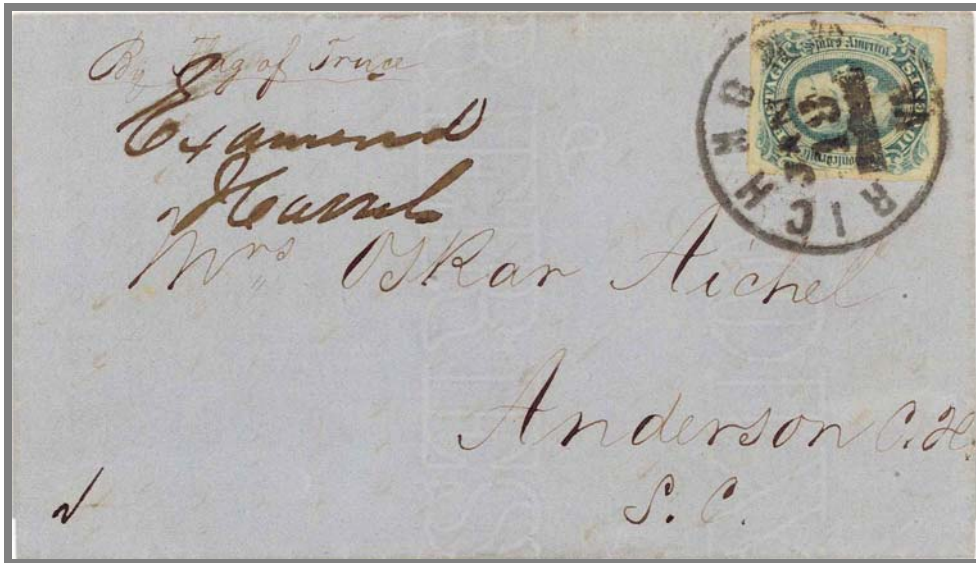 By Flag of Truce
Examined
Mrs Oskar Aichel
Anderson C.H.
S. C.
RICHMOND
States America